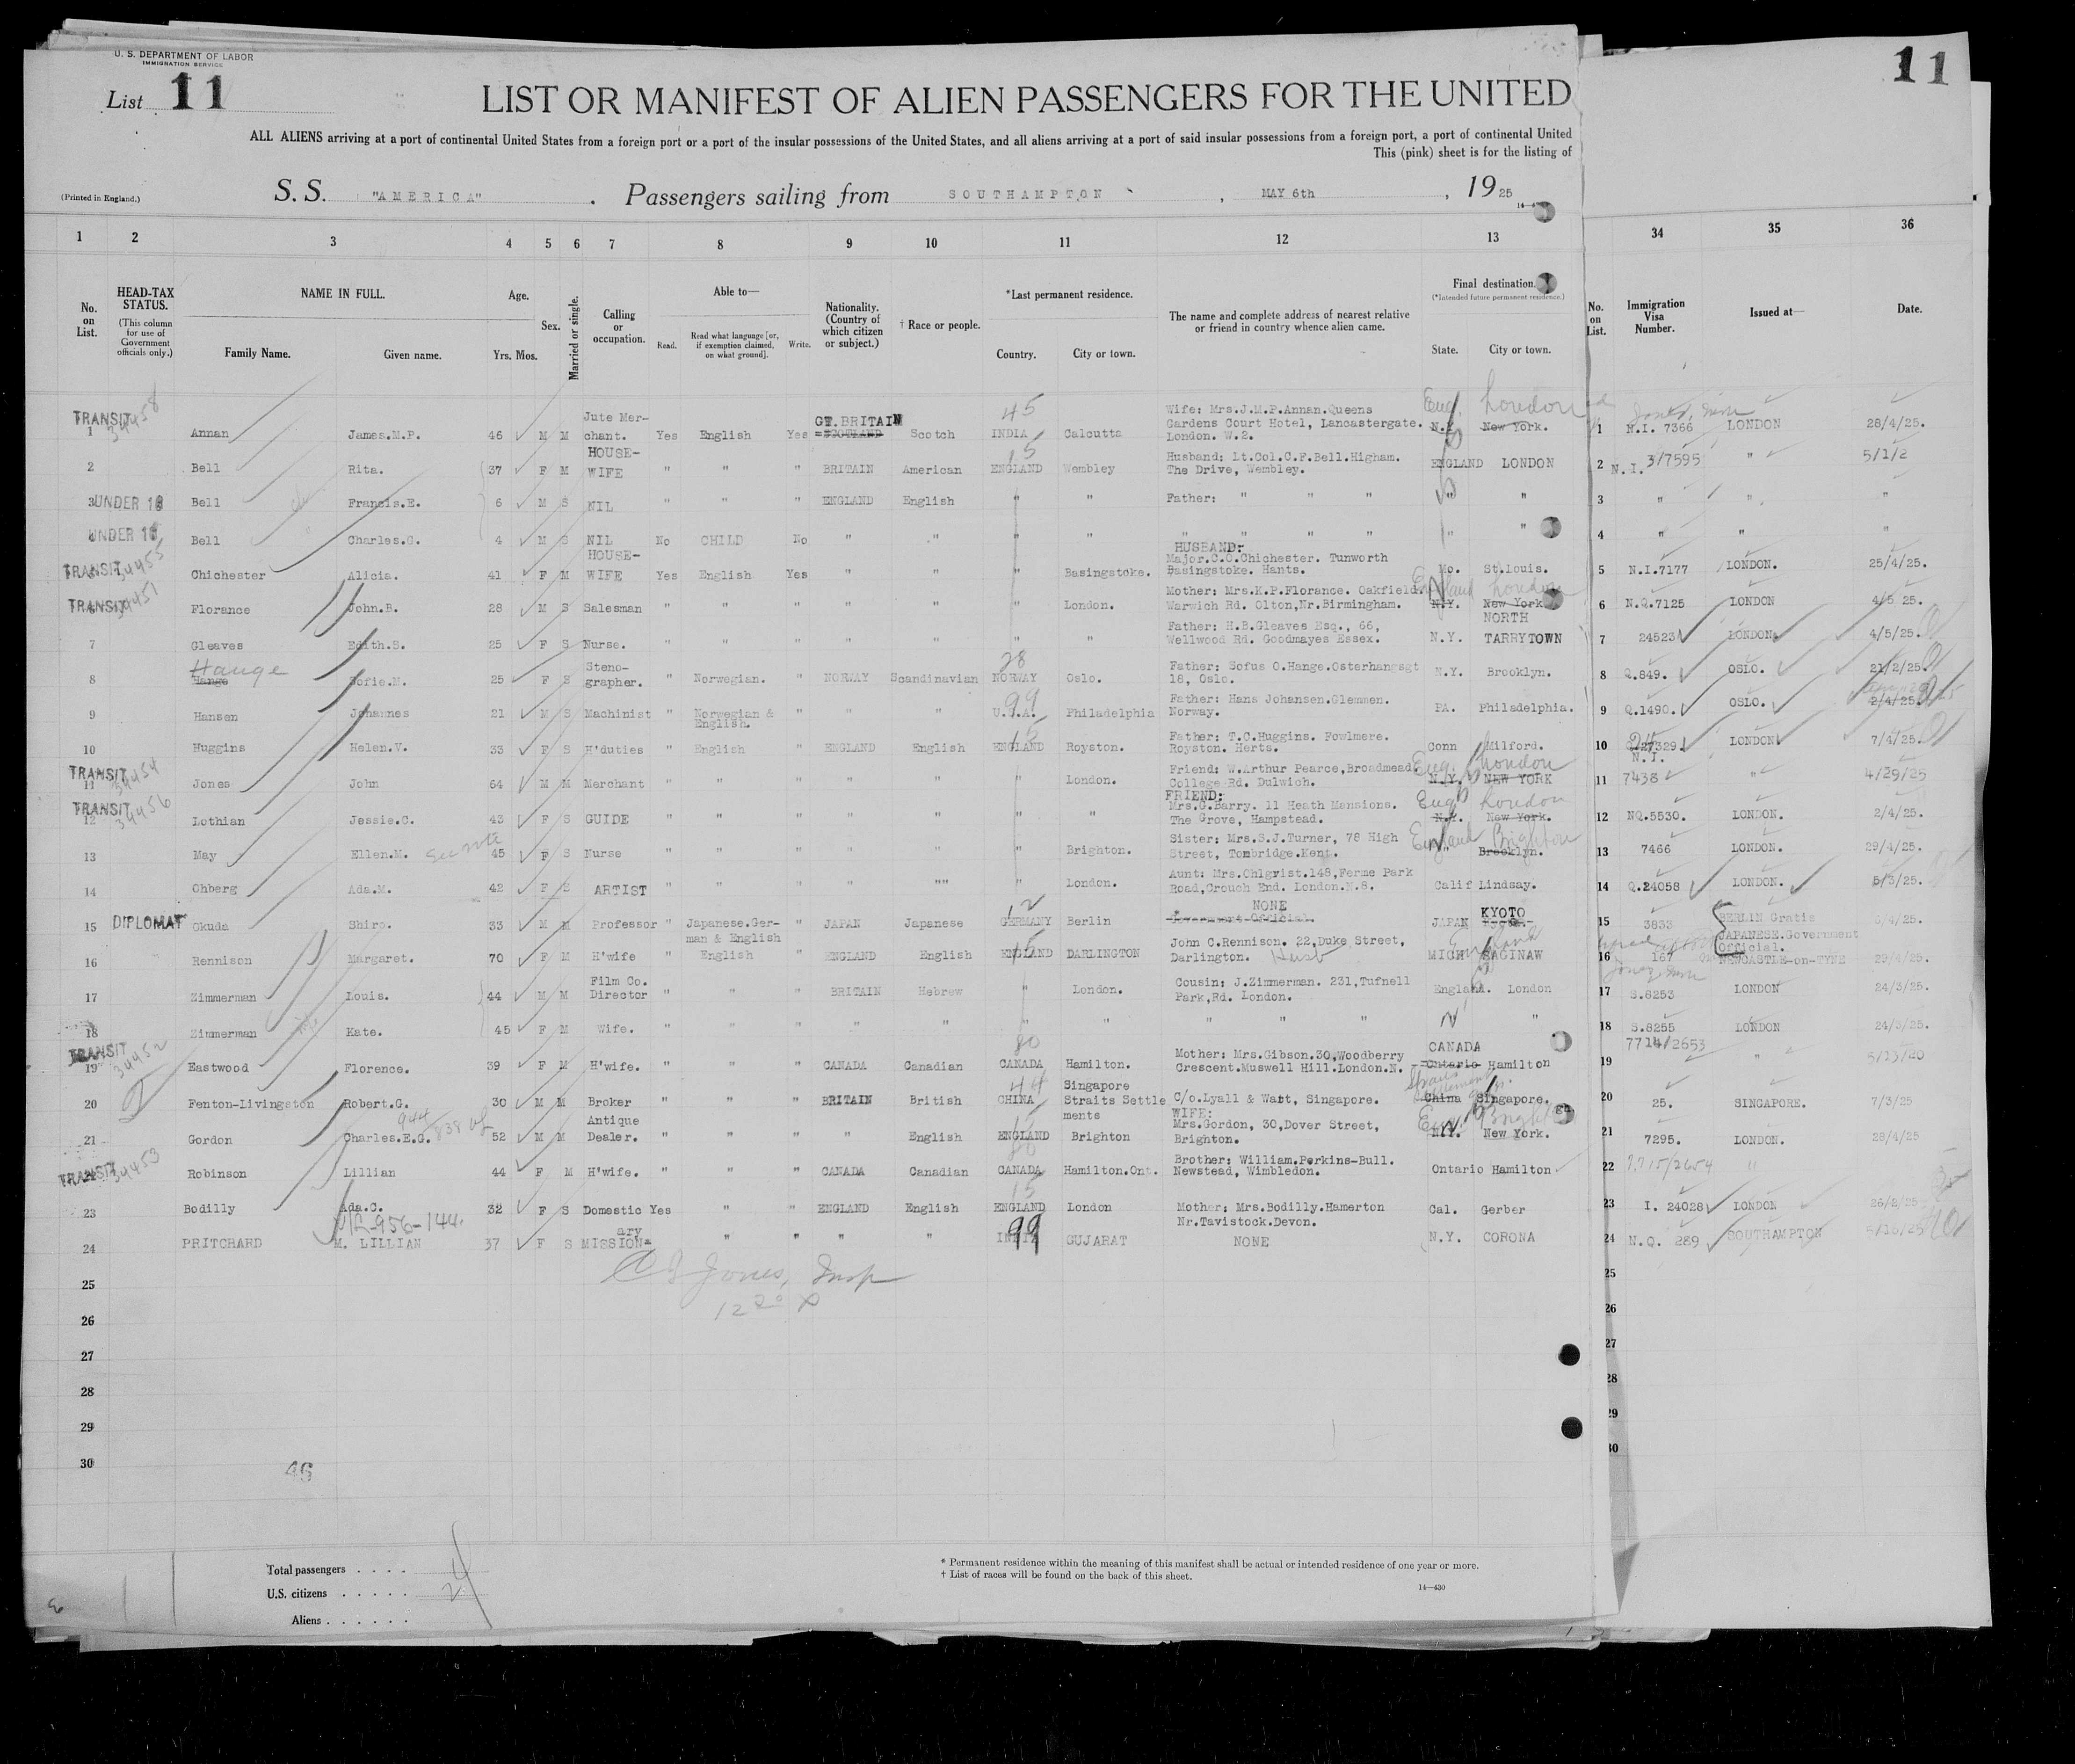 U. S. DEPARTMENT OF LABOR
IMMIGRATION SERVICE
List 11
11
LIST OR MANIFEST OF ALIEN PASSENGERS FOR THE UNITED
ALL ALIENS arriving at a port of continental United States from a foreign port or a port of the insular possessions of the United States, and all aliens arriving at a port of said insular possessions from a foreign port, a port of continental United
This (pink) sheet is for the listing of
(Printed in England.)
S. S. "AMERICA" . Passengers sailing from SOUTHAMPTON , MAY 6th , 1925
1 2 3 4 5 6 7 8 9 10 11 12 13 34 35 36
No. on List.
HEAD-TAX STATUS.
(This column for use of Government officials only.)
NAME IN FULL.
Family Name. Given name.
Age.
Yrs. Mos.
Sex.
Married or single.
Calling or occupation.
Able to—
Read. Read what language [or, if exemption claimed, on what ground]. Write.
Nationality. (Country of which citizen or subject.)
† Race or people.
*Last permanent residence.
Country. City or town.
The name and complete address of nearest relative or friend in country whence alien came.
Final destination.
(*Intended future permanent residence.)
State. City or town.
No. on List.
Immigration Visa Number.
Issued at—
Date.
TRANSIT 34458 1 Annan James.M.P. 46 M M Jute Merchant. Yes English Yes GT.BRITAIN SCOTLAND Scotch 45 INDIA Calcutta Wife: Mrs.J.M.P.Annan.Queens Gardens Court Hotel, Lancastergate. London. W.2. Eng. London N.Y. New York. 1 N.I. 7366 LONDON 28/4/25.
2 Bell Rita. 37 F M HOUSE-WIFE " " " BRITAIN American 15 ENGLAND Wembley Husband: Lt.Col.C.F.Bell.Higham. The Drive, Wembley. ENGLAND LONDON 2 N.I. 3/7595 " 5/1/2
3 UNDER 16 Bell Francis.E. 6 M S NIL " " " ENGLAND English " " Father: " " " " " 3 " " "
UNDER 16 Bell Charles.G. 4 M S NIL No CHILD No " " " " " " " " " " 4 " " "
TRANSIT 34455 Chichester Alicia. 41 F M HOUSE-WIFE Yes English Yes " " " Basingstoke. HUSBAND: Major.C.O.Chichester. Tunworth Basingstoke. Hants. Mo. St.Louis. 5 N.I.7177 LONDON. 25/4/25.
TRANSIT 34451 Florance John.B. 28 M S Salesman " " " " " " London. Mother: Mrs.K.P.Florance. Oakfield. Warwich Rd. Olton,Nr.Birmingham. England London N.Y. New York 6 N.Q.7125 LONDON 4/5 25.
7 Gleaves Edith.S. 25 F S Nurse. " " " " " " " Father: H.B.Gleaves Esq., 66, Wellwood Rd. Goodmayes Essex. N.Y. NORTH TARRYTOWN 7 24523 LONDON. 4/5/25.
8 Hauge Hange Sofie.M. 25 F S Stenographer. " Norwegian. " NORWAY Scandinavian 28 NORWAY Oslo. Father: Sofus O.Hange.Osterhangsgt 18, Oslo. N.Y. Brooklyn. 8 Q.849. OSLO. 21/2/25.
9 Hansen Johannes 21 M S Machinist " Norwegian & English. " " " 99 U.S.A. Philadelphia Father: Hans Johansen.Glemmen. Norway. PA. Philadelphia. 9 Q.1490. OSLO. 2/4/25.
10 Huggins Helen.V. 33 F S H'duties " English " ENGLAND English 15 ENGLAND Royston. Father: T.C.Huggins. Fowlmere. Royston. Herts. Conn Milford. 10 LONDON 7/4/25.
TRANSIT 34454 11 Jones John 54 M M Merchant " " " " " " London. Friend: W.Arthur Pearce,Broadmead. College Rd. Dulwich. Eng. London N.Y. NEW YORK 11 N.I. 7438 " 4/29/25
TRANSIT 34456 12 Lothian Jessie.C. 43 F S GUIDE " " " " " " " FRIEND: Mrs.G.Barry. 11 Heath Mansions. The Grove, Hampstead. Eng London N.Y. New York. 12 NQ.5530. LONDON. 2/4/25.
13 May Ellen.M. 45 F S Nurse " " " " " " Brighton. Sister: Mrs.S.J.Turner, 78 High Street, Tonbridge.Kent. England Brighton " Brooklyn. 13 7466 LONDON. 29/4/25.
14 Ohberg Ada.M. 42 F S ARTIST " " " " "" " London. Aunt: Mrs.Ohlqvist.148,Ferme Park Road,Crouch End. London.N.8. Calif Lindsay. 14 Q.24058 LONDON. 5/3/25.
15 DIPLOMAT Okuda Shiro. 33 M M Professor " Japanese.German & English " JAPAN Japanese 12 GERMANY Berlin NONE Government Official. JAPAN KYOTO 15 3833 BERLIN Gratis JAPANESE.Government Official. 6/4/25.
16 Rennison Margaret. 70 F M H'wife " English " ENGLAND English 15 ENGLAND DARLINGTON John C.Rennison. 22,Duke Street, Darlington. Husb England MICH SAGINAW 16 167 NEWCASTLE-on-TYNE 29/4/25.
17 Zimmerman Louis. 44 M M Film Co. Director " " " BRITAIN Hebrew " London. Cousin: J.Zimmerman. 231,Tufnell Park,Rd. London. England. London 17 S.8253 LONDON 24/3/25.
18 Zimmerman Kate. 45 F M Wife. " " " " " " " " " " " 18 S.8255 LONDON 24/3/25.
TRANSIT 34452 19 Eastwood Florence. 39 F M H'wife. " " " CANADA Canadian 80 CANADA Hamilton. Mother: Mrs.Gibson.30,Woodberry Crescent.Muswell Hill.London.N. CANADA Ontario Hamilton 19 7714/2653 " 5/13/20
20 Fenton-Livingston Robert.G. 30 M M Broker " " " BRITAIN British 44 CHINA Singapore Straits Settlements C/o.Lyall & Watt, Singapore. Straits Settlement China Singapore. 20 25. SINGAPORE. 7/3/25
21 Gordon Charles.E.G. 52 M M Antique Dealer. " " " " English 15 ENGLAND Brighton WIFE: Mrs.Gordon, 30,Dover Street, Brighton. Eng. Brighton N.Y. New York. 21 7295. LONDON. 28/4/25
TRANSIT 34453 22 Robinson Lillian 44 F M H'wife. " " " CANADA Canadian 80 CANADA Hamilton.Ont. Brother: William.Perkins-Bull. Newstead, Wimbledon. Ontario Hamilton 22 7715/2654 "
23 Bodilly Ada.C. 32 F S Domestic Yes " " ENGLAND English 15 ENGLAND London Mother: Mrs.Bodilly.Hamerton Nr.Tavistock.Devon. Cal. Gerber 23 I. 24028 LONDON 26/2/25
24 PRITCHARD M. LILLIAN 37 F S MISSIONary " " " " 99 INDIA GUJARAT NONE N.Y. CORONA 24 N.Q. 289 SOUTHAMPTON
25 25
Jones, Insp
26 26
27 27
28 28
29 29
30 30
46
Total passengers . . . .
U.S. citizens . . . . . 24
Aliens . . . . . .
* Permanent residence within the meaning of this manifest shall be actual or intended residence of one year or more.
† List of races will be found on the back of this sheet.
14—430